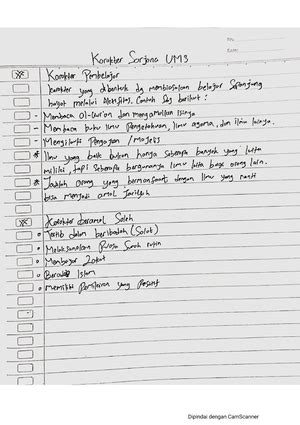 Karakter Sarjana UM3
Karakter Pembelajar
karakter yang dibentuk dg membiasakan belajar Sepanjang
hayat melalui Contoh sbg berikut :
- Membaca Al-Qur'an dan mengamalkan isinya
- Membaca buku Ilmu Pengetahuan, Ilmu agama, dan ilmu lainya.
- Mengikuti Pengajian / Majelis
* Ilmu yang baik bukan hanya seberapa banyak yang kita
miliki, tapi seberapa bergunanya ilmu kita bagi orang lain.
* Jadilah orang yang bermanfaat dengan ilmu yang nanti
bisa menjadi amal Jariyah
Karakter beramal Saleh
Tertib dalam beribadah (Solat)
Melaksanakan Puasa Sunah rutin
Membayar Zakat
Beradab Islam
memiliki Pemikiran yang Positif
Dipindai dengan CamScanner